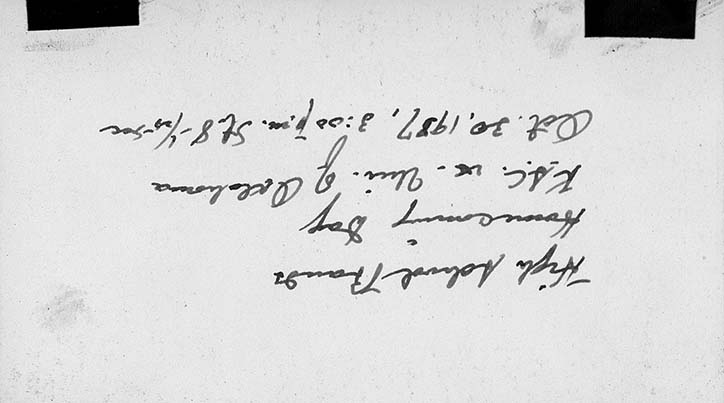 High School Bands
Homecoming Day
K.S.C. vs. Uni. of Oklahoma
Oct. 30, 1937, 3:00 p.m. St. 8 - 1/25 sec